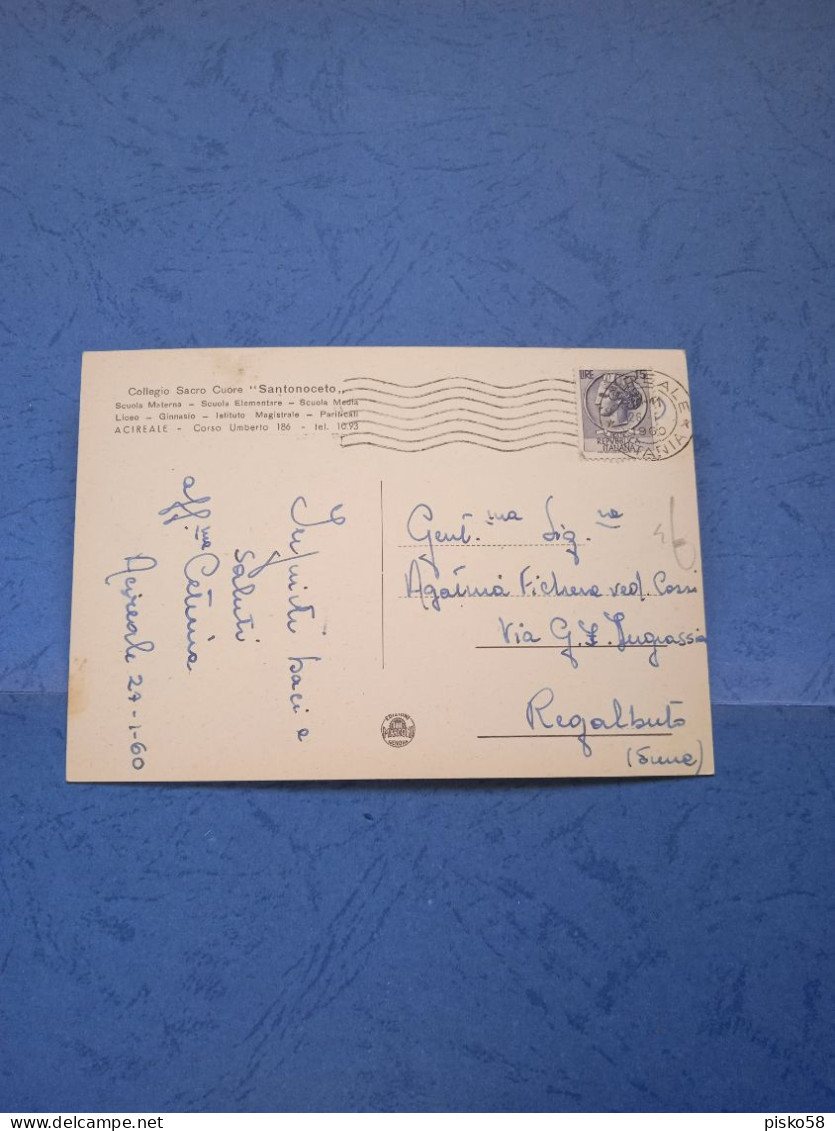 Collegio Sacro Cuore "Santonoceto"
Scuola Materna - Scuola Elementare - Scuola Media
Liceo - Ginnasio - Istituto Magistrale - Parificati
ACIREALE - Corso Umberto 186 - tel. 10.93
LIRE 15
REPVBBLICA
ITALIANA
1960
Infiniti baci e
saluti
aff.ma Caterina
Acireale 24-1-60
Gent.ma Sig.ra
Agatina Fichera ved.
Via G.F. Ingrassia
Regalbuto
(Enna)
GENOVA
pisko58